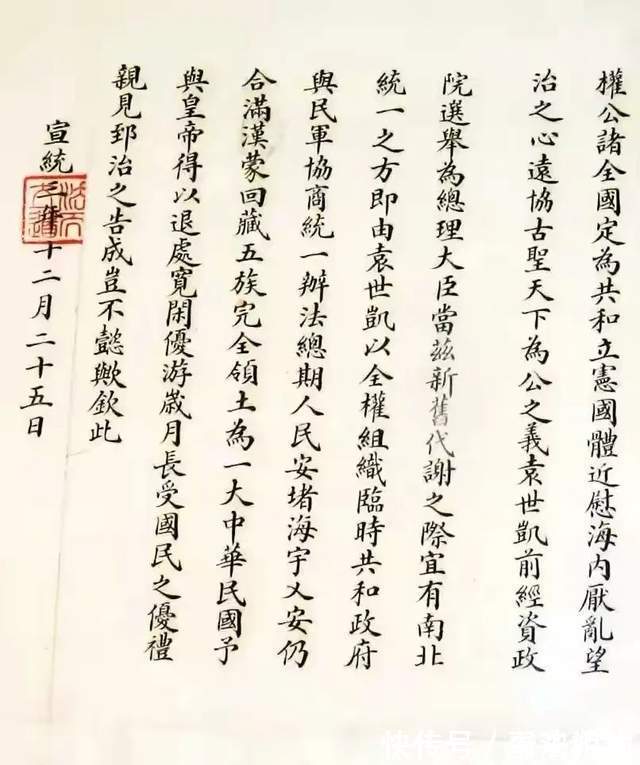 權公諸全國定為共和立憲國體近慰海內厭亂望
治之心遠協古聖天下為公之義袁世凱前經資政
院選舉為總理大臣當茲新舊代謝之際宜有南北
統一之方即由袁世凱以全權組織臨時共和政府
與民軍協商統一辦法總期人民安堵海宇乂安仍
合滿漢蒙回藏五族完全領土為一大中華民國予
與皇帝得以退處寬閑優游歲月長受國民之優禮
親見郅治之告成豈不懿歟欽此
宣統三年十二月二十五日
法天立道
快传号 /